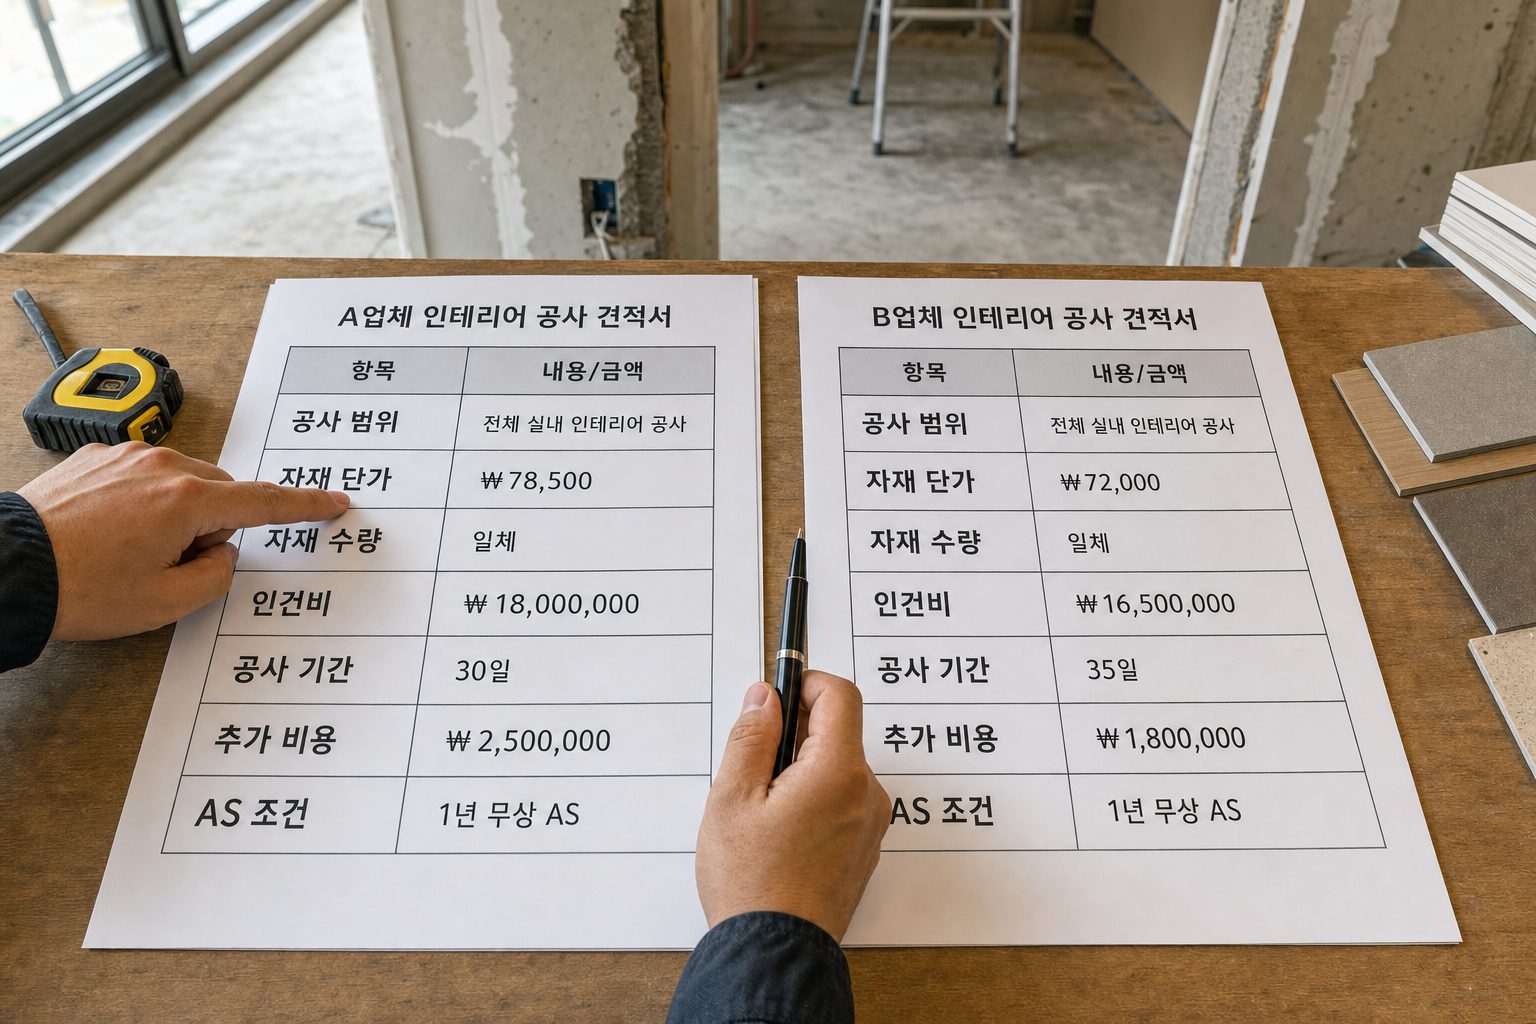 A업체 인테리어 공사 견적서
항목 내용/금액
공사 범위 전체 실내 인테리어 공사
자재 단가 ₩78,500
자재 수량 일체
인건비 ₩18,000,000
공사 기간 30일
추가 비용 ₩2,500,000
AS 조건 1년 무상 AS
B업체 인테리어 공사 견적서
항목 내용/금액
공사 범위 전체 실내 인테리어 공사
자재 단가 ₩72,000
자재 수량 일체
인건비 ₩16,500,000
공사 기간 35일
추가 비용 ₩1,800,000
AS 조건 1년 무상 AS